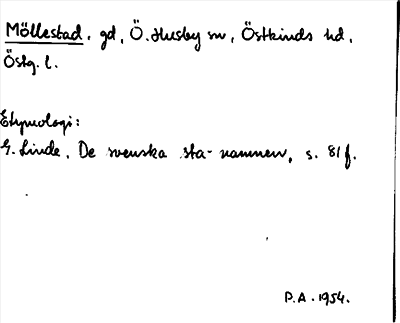 Möllestad. gd, Ö. Husby sn, Östkinds hd,
Östg. l.
Etymologi:
G. Linde, De svenska sta-namnen, s. 81 f.
P.A. 1954.